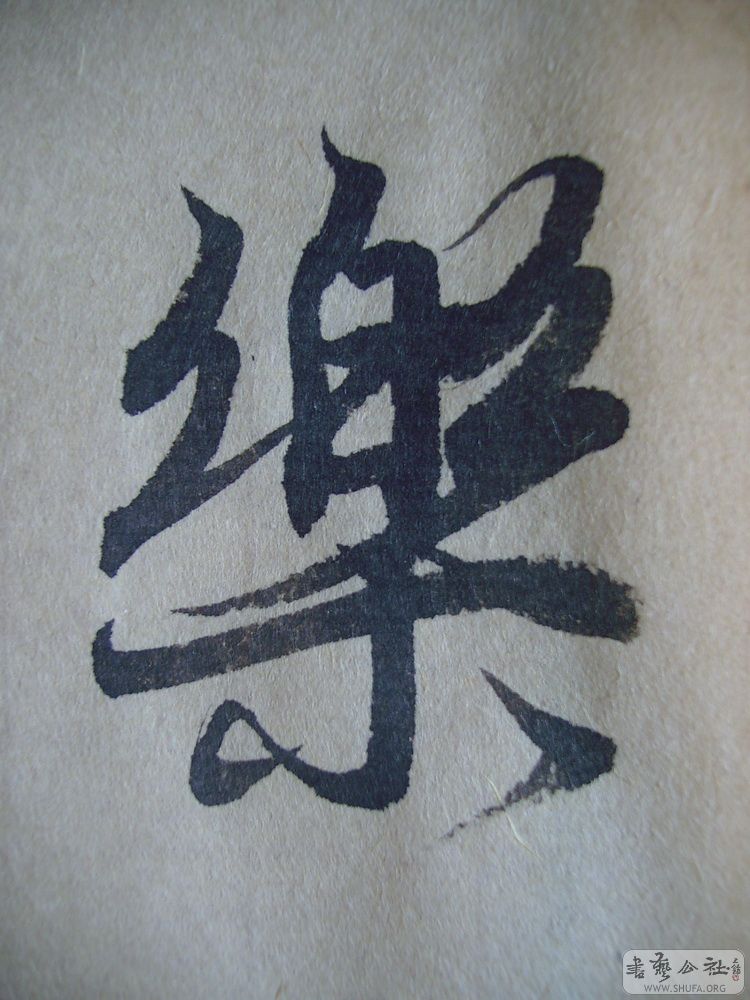 樂
書藝公社
WWW.SHUFA.ORG